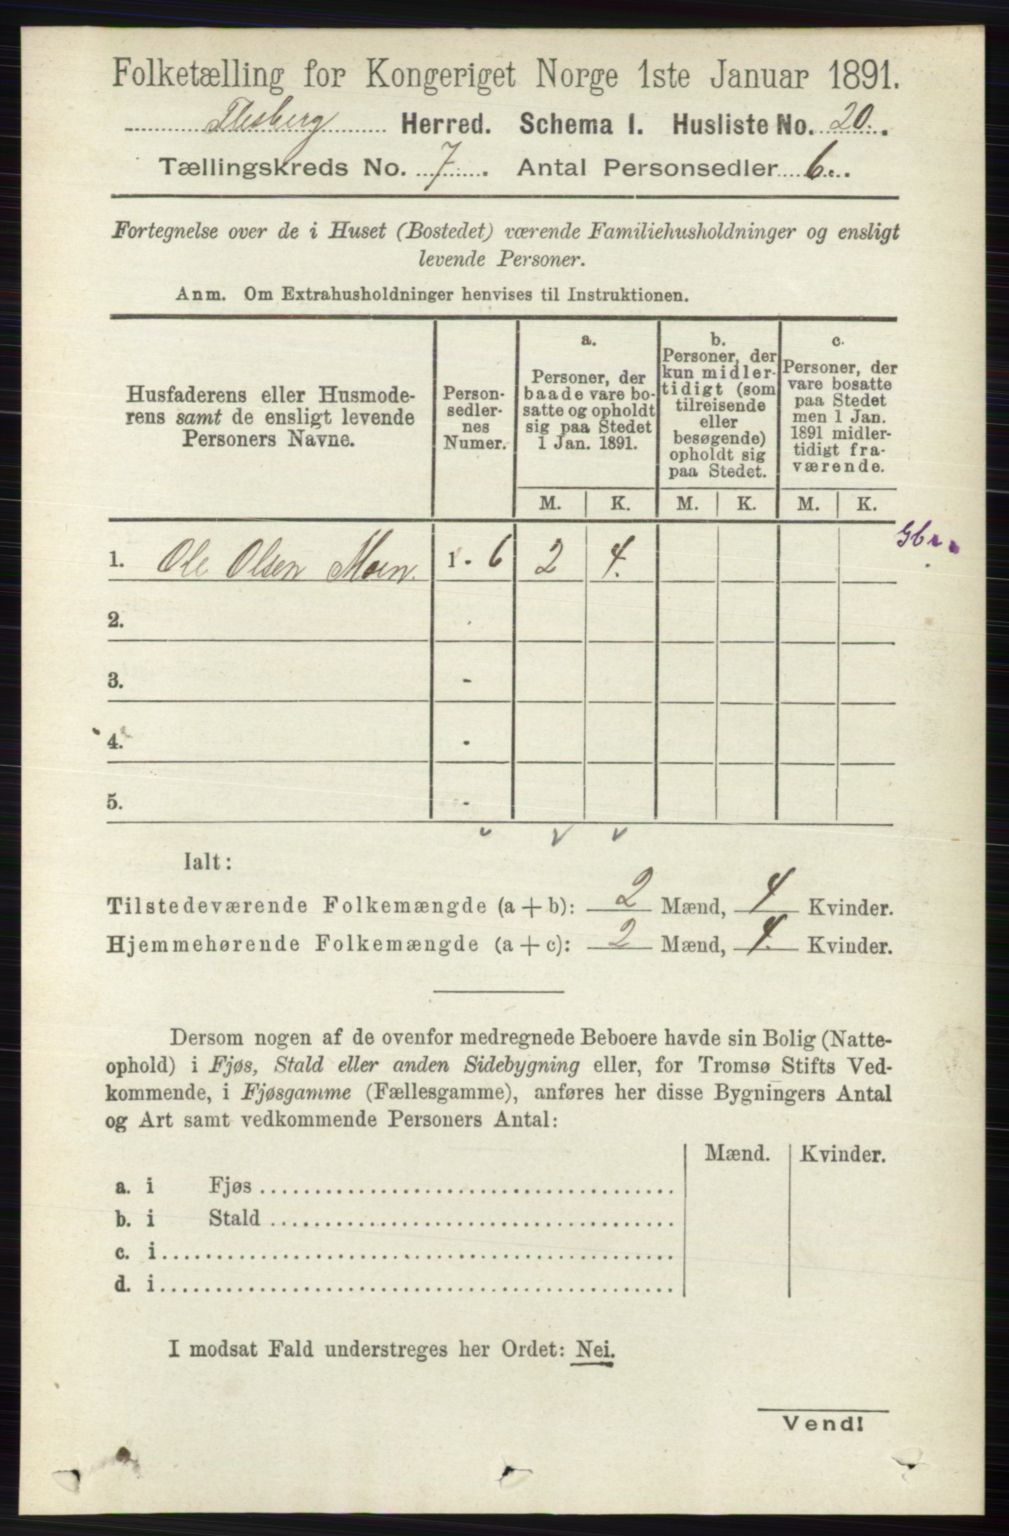 Folketælling for Kongeriget Norge 1ste Januar 1891.
Flesberg Herred. Schema I. Husliste No. 20.
Tællingskreds No. 7. Antal Personsedler 6.
Fortegnelse over de i Huset (Bostedet) værende Familiehusholdninger og ensligt
levende Personer.
Anm. Om Extrahusholdninger henvises til Instruktionen.
Husfaderens eller Husmode-
rens samt de ensligt levende
Personers Navne.
Person-
sedler-
nes
Numer.
a.
Personer, der
baade vare bo-
satte og opholdt
sig paa Stedet
1 Jan. 1891.
b.
Personer, der
kun midler-
tidigt (som
tilreisende
eller
besøgende)
opholdt sig
paa Stedet.
c.
Personer, der
vare bosatte
paa Stedet
men 1 Jan.
1891 midler-
tidigt fra-
værende.
M. K. M. K. M. K.
1. Ole Olsen Moen. 1 - 6 2 4.
2.
3. -
4. -
5. -
Ialt:
Tilstedeværende Folkemængde (a + b): 2 Mænd, 4 Kvinder.
Hjemmehørende Folkemængde (a + c): 2 Mænd, 4. Kvinder.
Dersom nogen af de ovenfor medregnede Beboere havde sin Bolig (Natte-
ophold) i Fjøs, Stald eller anden Sidebygning eller, for Tromsø Stifts Ved-
kommende, i Fjøsgamme (Fællesgamme), anføres her disse Bygningers Antal
og Art samt vedkommende Personers Antal:
Mænd. Kvinder.
a. i Fjøs
b. i Stald
c. i
d. i
I modsat Fald understreges her Ordet: Nei.
Vend!